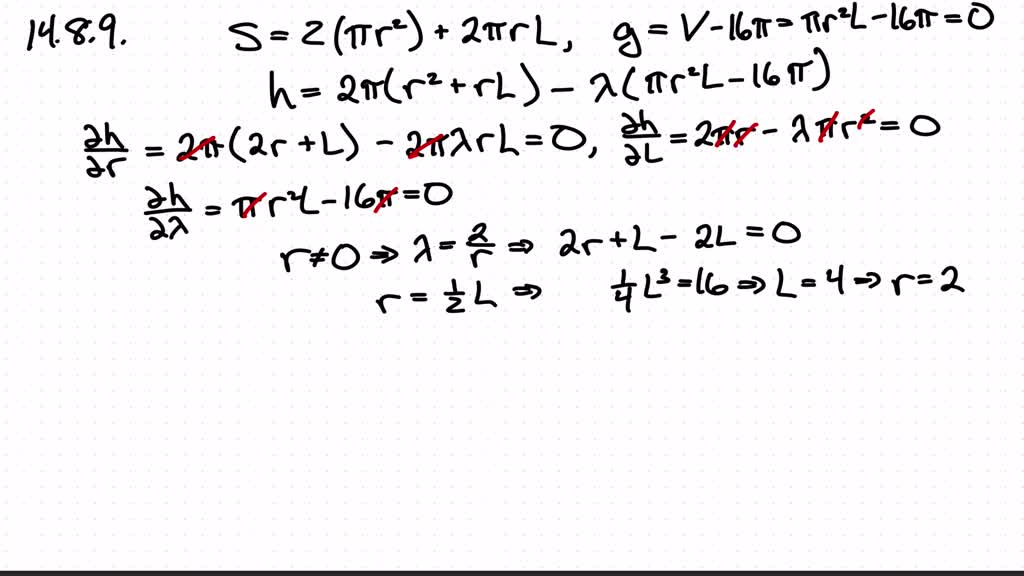 14.8.9. S = 2(πr²) + 2πrL, g = V - 16π = πr²L - 16π = 0
h = 2π(r² + rL) - λ(πr²L - 16π)
∂h/∂r = 2π(2r + L) - 2πλrL = 0, ∂h/∂L = 2πr - λπr² = 0
∂h/∂λ = πr²L - 16π = 0
r ≠ 0 ⇒ λ = 2/r ⇒ 2r + L - 2L = 0
r = 1/2 L ⇒ 1/4 L³ = 16 ⇒ L = 4 ⇒ r = 2